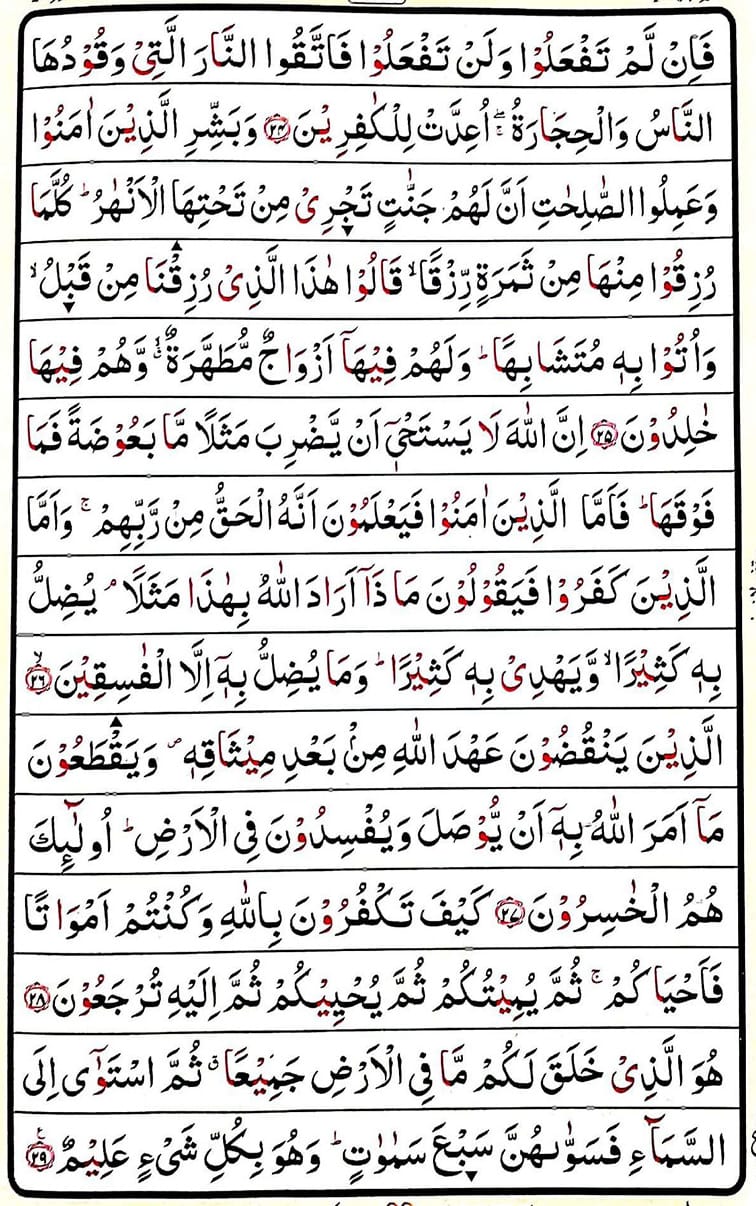 فَاِنۡ لَّمۡ تَفۡعَلُوۡا وَلَنۡ تَفۡعَلُوۡا فَاتَّقُوا النَّارَ الَّتِىۡ وَقُوۡدُهَا
النَّاسُ وَالۡحِجَارَةُ ۖۚ اُعِدَّتۡ لِلۡكٰفِرِيۡنَ ﴿۲۴﴾ وَبَشِّرِ الَّذِيۡنَ اٰمَنُوۡا
وَعَمِلُوا الصّٰلِحٰتِ اَنَّ لَهُمۡ جَنّٰتٍ تَجۡرِىۡ مِنۡ تَحۡتِهَا الۡاَنۡهٰرُ ؕ كُلَّمَا
رُزِقُوۡا مِنۡهَا مِنۡ ثَمَرَةٍ رِّزۡقًا ۙ قَالُوۡا هٰذَا الَّذِىۡ رُزِقۡنَا مِنۡ قَبۡلُ ۙ
وَاُتُوۡا بِهٖ مُتَشَابِهًا ؕ وَلَهُمۡ فِيۡهَآ اَزۡوَاجٌ مُّطَهَّرَةٌ ۙۗ وَّهُمۡ فِيۡهَا
خٰلِدُوۡنَ ﴿۲۵﴾ اِنَّ اللّٰهَ لَا يَسۡتَحۡىٖۤ اَنۡ يَّضۡرِبَ مَثَلًا مَّا بَعُوۡضَةً فَمَا
فَوۡقَهَا ؕ فَاَمَّا الَّذِيۡنَ اٰمَنُوۡا فَيَعۡلَمُوۡنَ اَنَّهُ الۡحَقُّ مِنۡ رَّبِّهِمۡ ۚ وَاَمَّا
الَّذِيۡنَ كَفَرُوۡا فَيَقُوۡلُوۡنَ مَاذَآ اَرَادَ اللّٰهُ بِهٰذَا مَثَلًا ۘ يُضِلُّ
بِهٖ كَثِيۡرًا ۙ وَّيَهۡدِىۡ بِهٖ كَثِيۡرًا ؕ وَمَا يُضِلُّ بِهٖۤ اِلَّا الۡفٰسِقِيۡنَ ۙ﴿۲۶﴾
الَّذِيۡنَ يَنۡقُضُوۡنَ عَهۡدَ اللّٰهِ مِنۡۢ بَعۡدِ مِيۡثَاقِهٖ ۖ وَيَقۡطَعُوۡنَ
مَآ اَمَرَ اللّٰهُ بِهٖۤ اَنۡ يُّوۡصَلَ وَيُفۡسِدُوۡنَ فِى الۡاَرۡضِ ؕ اُولٰٓئِكَ
هُمُ الۡخٰسِرُوۡنَ ﴿۲۷﴾ كَيۡفَ تَكۡفُرُوۡنَ بِاللّٰهِ وَكُنۡتُمۡ اَمۡوَاتًا
فَاَحۡيَاكُمۡ ۚ ثُمَّ يُمِيۡتُكُمۡ ثُمَّ يُحۡيِيۡكُمۡ ثُمَّ اِلَيۡهِ تُرۡجَعُوۡنَ ﴿۲۸﴾
هُوَ الَّذِىۡ خَلَقَ لَكُمۡ مَّا فِى الۡاَرۡضِ جَمِيۡعًا ۗ ثُمَّ اسۡتَوٰٓى اِلَى
السَّمَآءِ فَسَوّٰٮهُنَّ سَبۡعَ سَمٰوٰتٍ ؕ وَهُوَ بِكُلِّ شَىۡءٍ عَلِيۡمٌ ﴿۲۹﴾